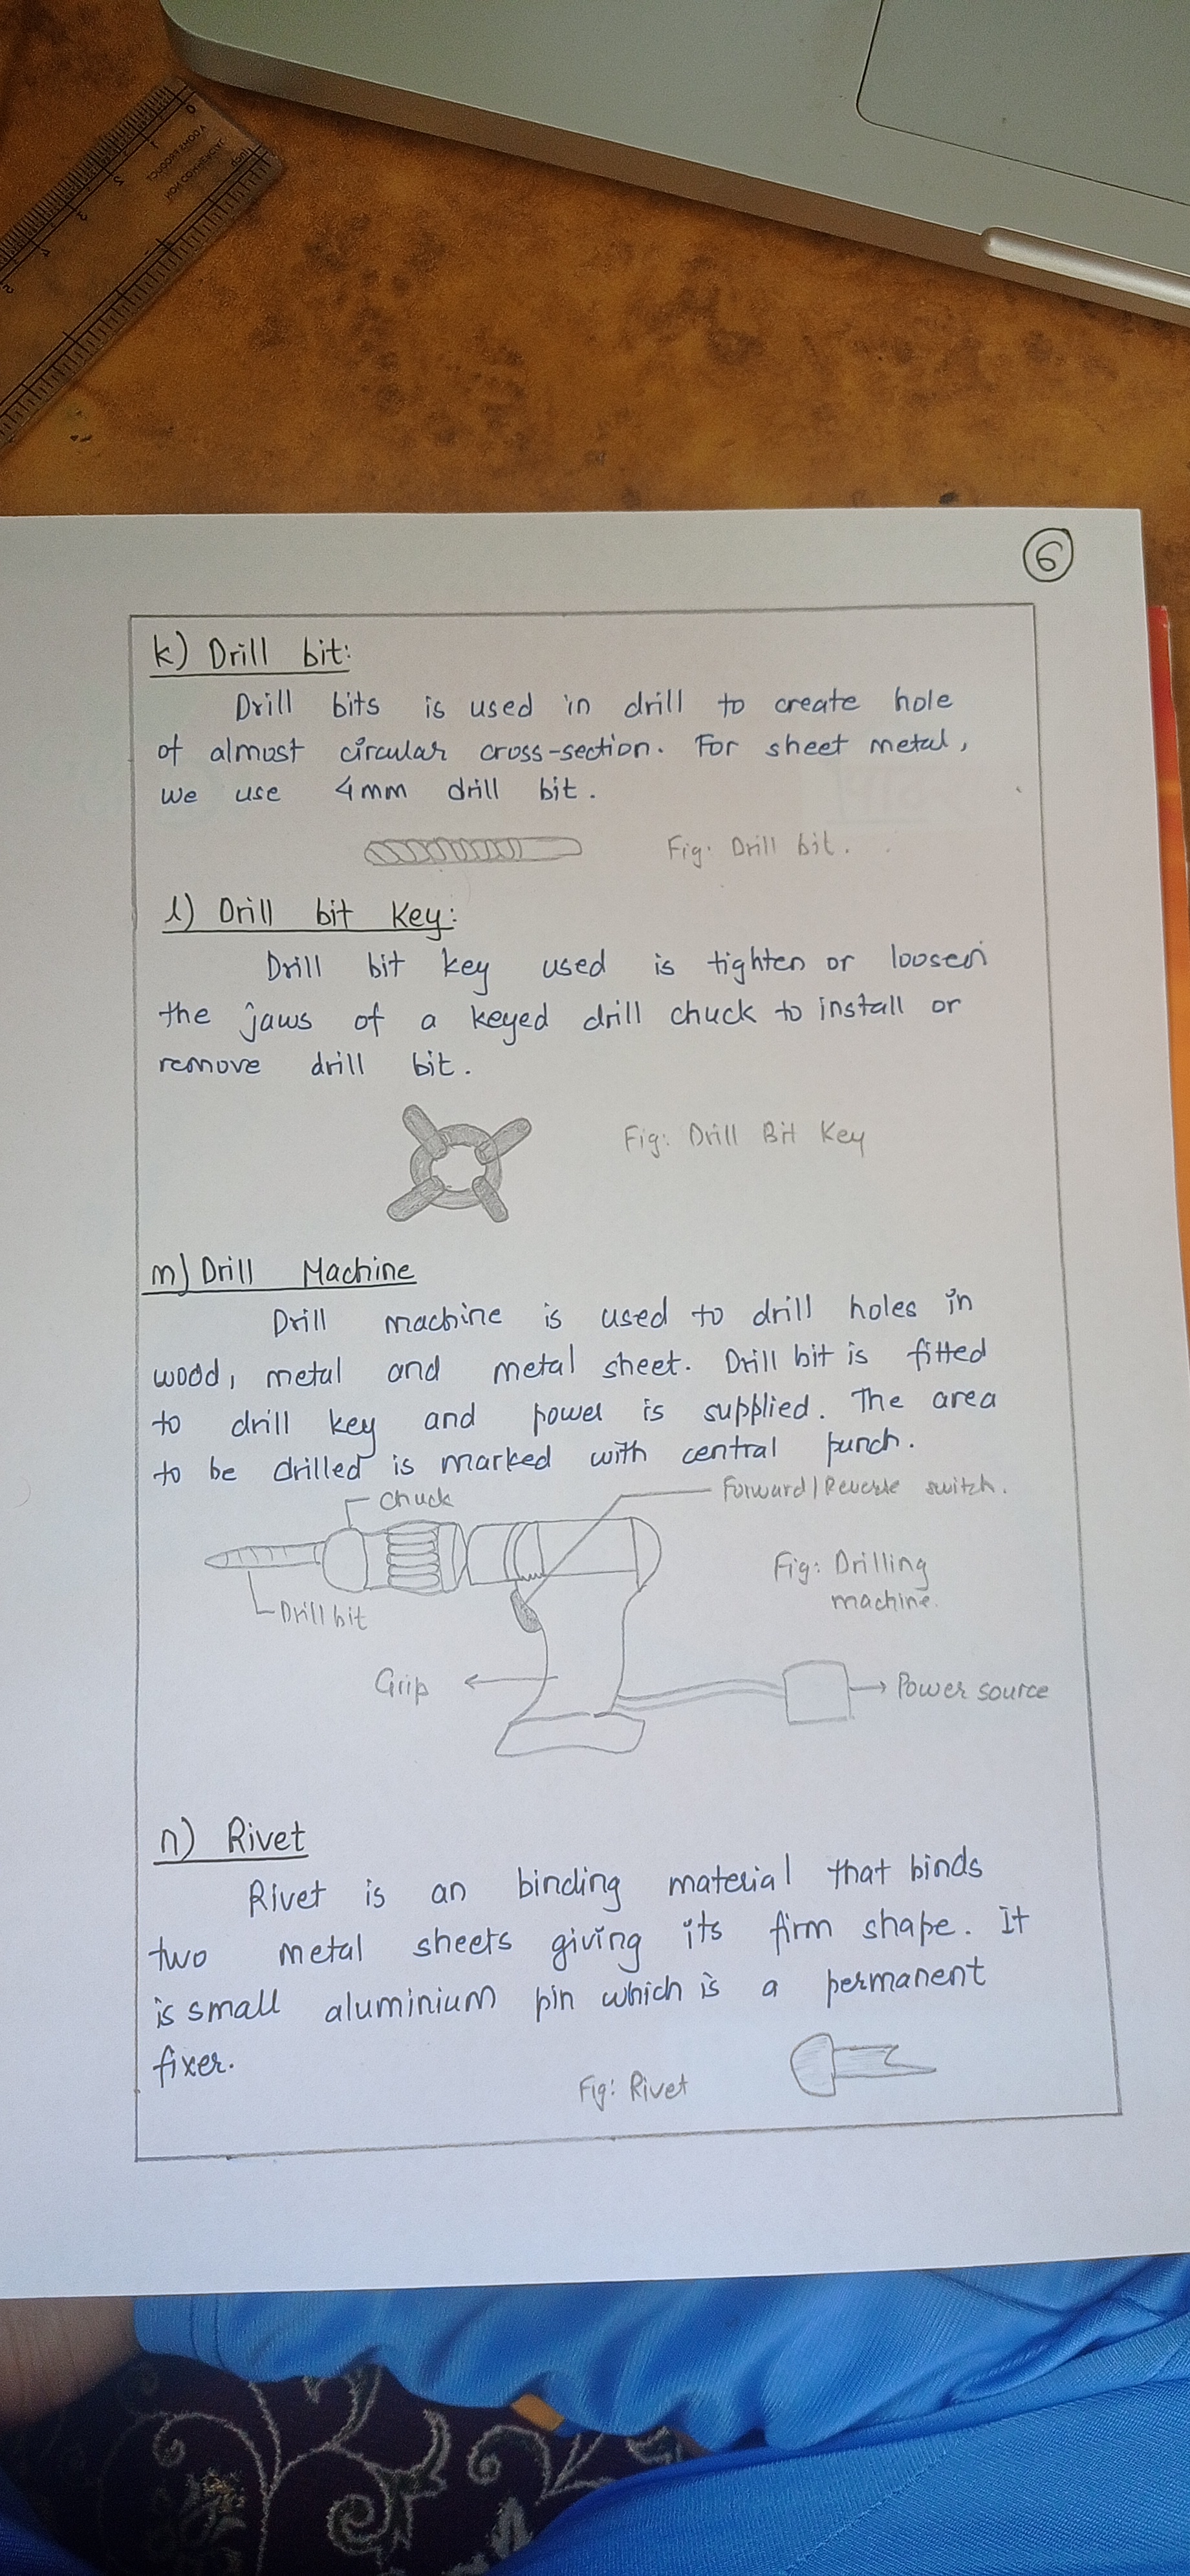 6
k) Drill bit:
Drill bits is used in drill to create hole
of almost circular cross-section. For sheet metal,
we use 4mm drill bit.
Fig: Drill bit.
l) Drill bit Key:
Drill bit key used is tighten or loosen
the jaws of a keyed drill chuck to install or
remove drill bit.
Fig: Drill Bit Key
m) Drill Machine
Drill machine is used to drill holes in
wood, metal and metal sheet. Drill bit is fitted
to drill key and power is supplied. The area
to be drilled is marked with central punch.
Chuck
Forward/Reverse switch.
Fig: Drilling
machine.
Drill bit
Grip
Power source
n) Rivet
Rivet is an binding material that binds
two metal sheets giving its firm shape. It
is small aluminium pin which is a permanent
fixer.
Fig: Rivet